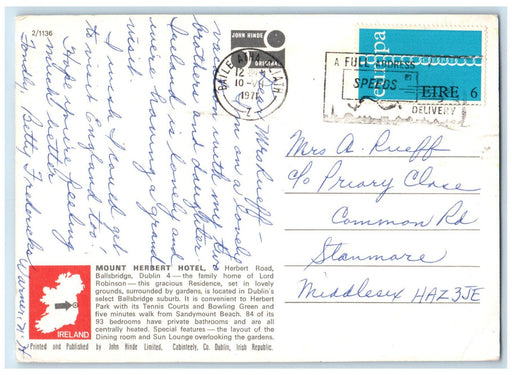 2/1136
JOHN HINDE
ORIGINAL
BAILE ÁTHA CLIATH
12
10
1971
A FULL ADDRESS
SPEEDS
DELIVERY
europa
EIRE 6
Mrs A. Rueff
c/o Priory Close
Common Rd
Stanmore
Middlesix HAZ3JE
Mrs Rueff-
I'm on a lovely
vacation with my two
brothers and daughter.
Ireland is lovely and
we're having a grand
visit.
I wish I could get
to see England too!
Hope you're feeling
much better
Fondly, Betty Fredericks
Warner, N.H
MOUNT HERBERT HOTEL, 7 Herbert Road,
Ballsbridge, Dublin 4—the family home of Lord
Robinson—this gracious Residence, set in lovely
grounds, surrounded by gardens, is located in Dublin's
select Ballsbridge suburb. It is convenient to Herbert
Park with its Tennis Courts and Bowling Green and
five minutes walk from Sandymount Beach. 84 of its
93 bedrooms have private bathrooms and are all
centrally heated. Special features—the layout of the
Dining room and Sun Lounge overlooking the gardens.
IRELAND
Printed and Published by John Hinde Limited, Cabinteely, Co. Dublin, Irish Republic.